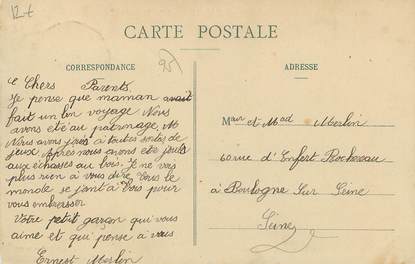 CARTE POSTALE
CORRESPONDANCE
Chers Parents.
Je pense que maman avait
fait un bon voyage Nous
avons été au patronage,
Nous avons joués à toutes sortes de
jeux. Après nous avons été
aux échasses au bois. Je ne vois
plus rien à vous dire Tous le
monde se joint à vous pour
vous embrasser
Votre petit garçon qui vous
aime et qui pense à vous
Ernest Merlin
ADRESSE
et Mad Merlin
60 rue d'Enfert Rochereau
à Boulogne Sur Seine
Seine